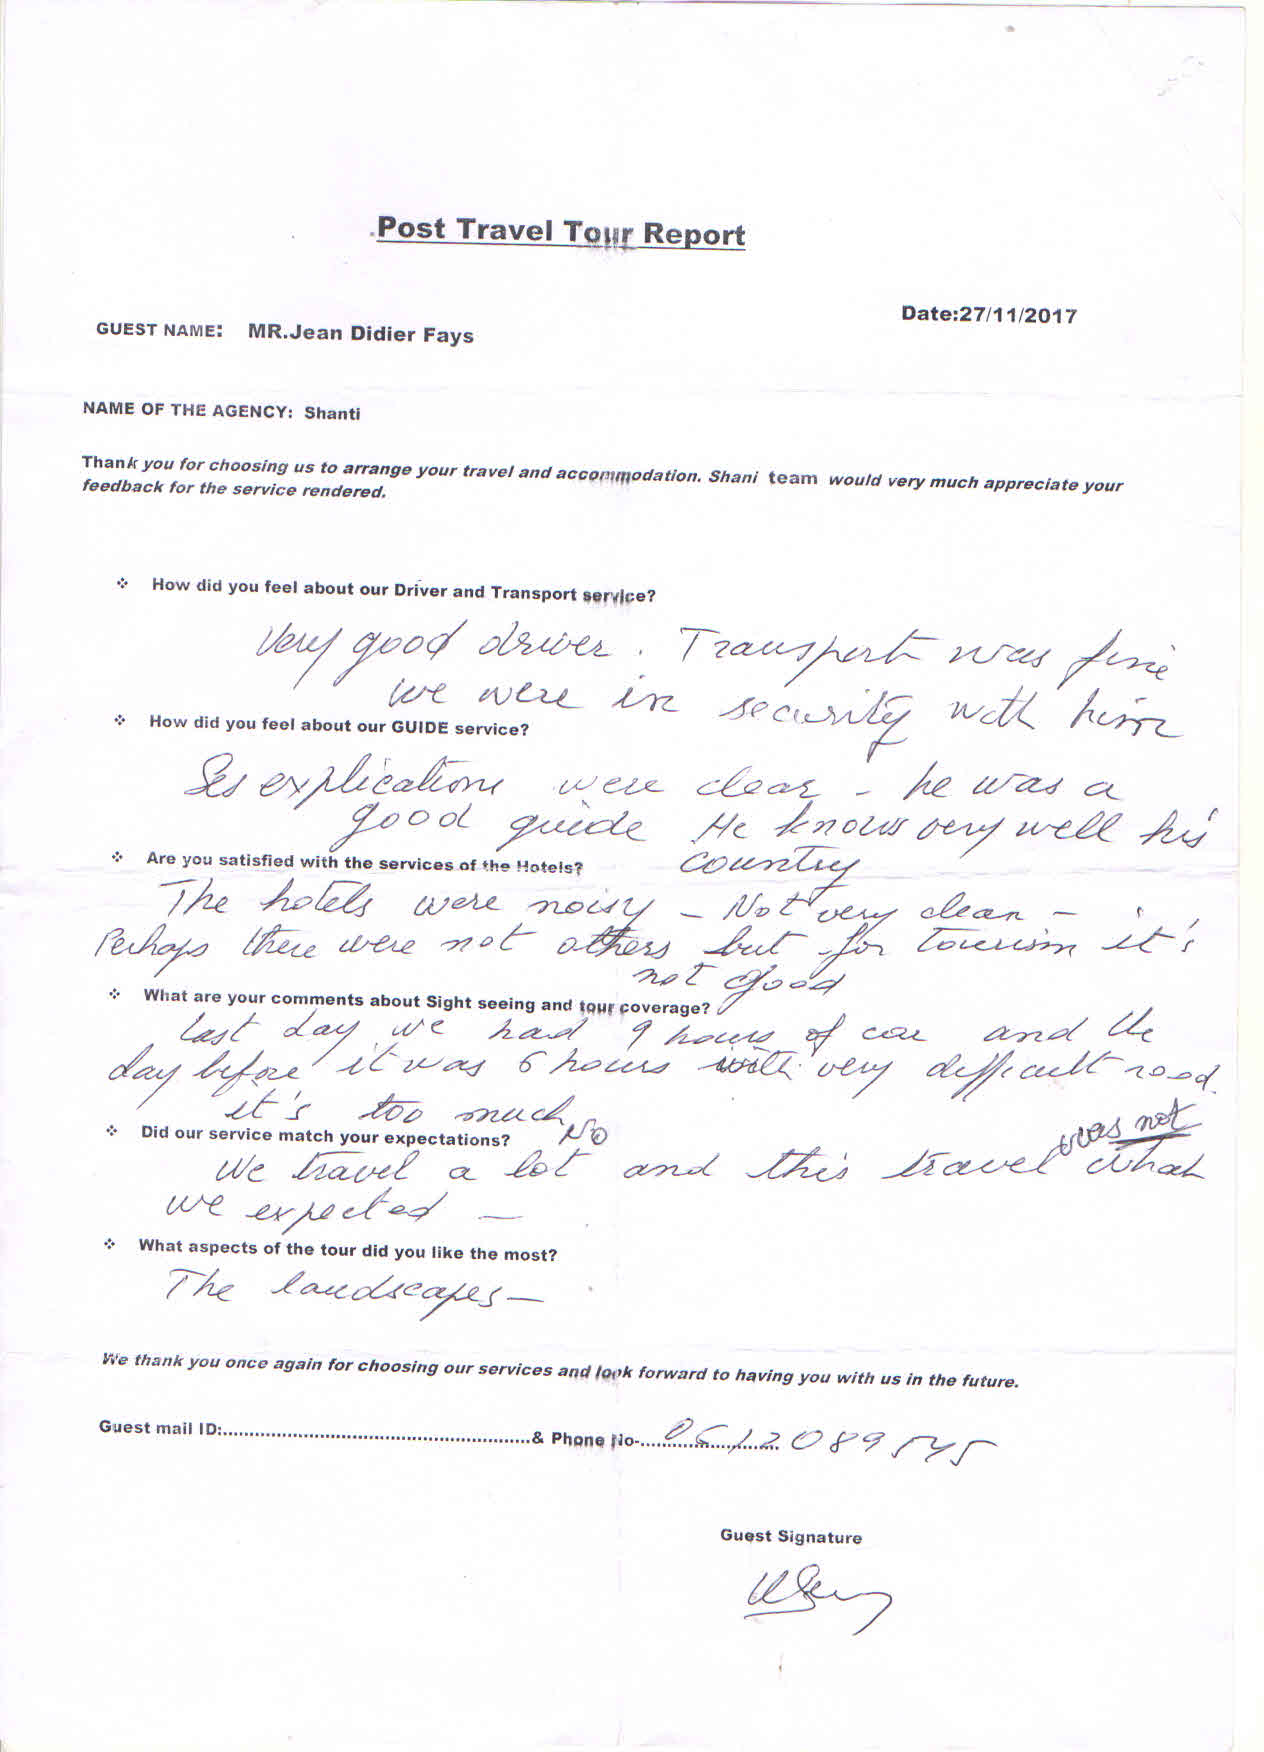 Post Travel Tour Report
Date:27/11/2017
GUEST NAME: MR.Jean Didier Fays
NAME OF THE AGENCY: Shanti
Thank you for choosing us to arrange your travel and accommodation. Shani team would very much appreciate your
feedback for the service rendered.
❖ How did you feel about our Driver and Transport service?
Very good driver. Transport was fine
we were in security with him
❖ How did you feel about our GUIDE service?
Ses explications were clear - he was a
good guide He knows very well his
country
❖ Are you satisfied with the services of the Hotels?
The hotels were noisy - Not very clean -
Perhaps there were not others but for tourism it's
not good
❖ What are your comments about Sight seeing and tour coverage?
last day we had 9 hours of car and the
day before it was 6 hours with very difficult road.
it's too much
❖ Did our service match your expectations? No
We travel a lot and this travel was not what
we expected -
❖ What aspects of the tour did you like the most?
The landscapes -
We thank you once again for choosing our services and look forward to having you with us in the future.
Guest mail ID:..........................................................& Phone No-.......................... 0612089545
Guest Signature